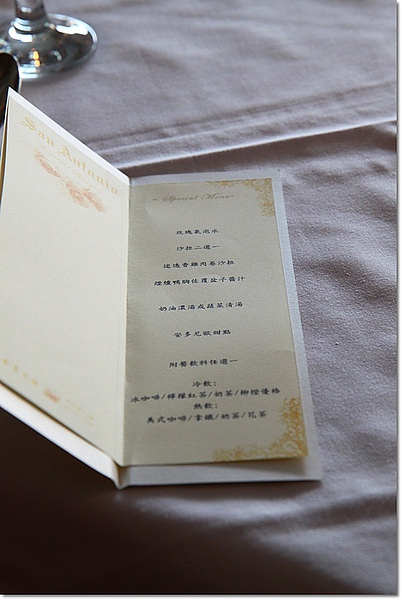 San Antonio
Special Menu
玫瑰氣泡水
沙拉二選一
迷迭香雞肉卷沙拉
煙燻鴨胸佐覆盆子醬汁
奶油濃湯或蔬菜清湯
安多尼歐甜點
附餐飲料任選一
冷飲:
冰咖啡/檸檬紅茶/奶茶/柳橙優格
熱飲:
美式咖啡/拿鐵/奶茶/花茶